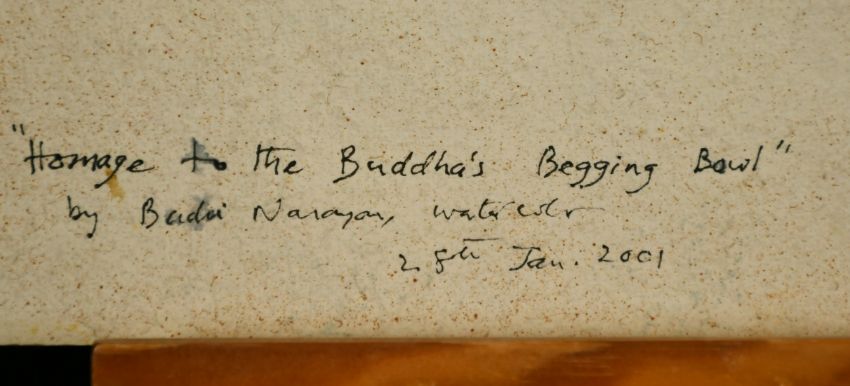 "Homage to the Buddha's Begging Bowl"
by Badri Narayan, watercolor
28th Jan. 2001